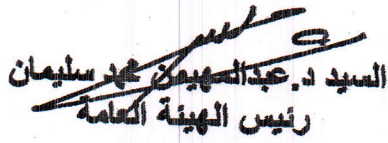 السيد د. عبدالمهيمن محمد سليمان
رئيس الهيئة العامة